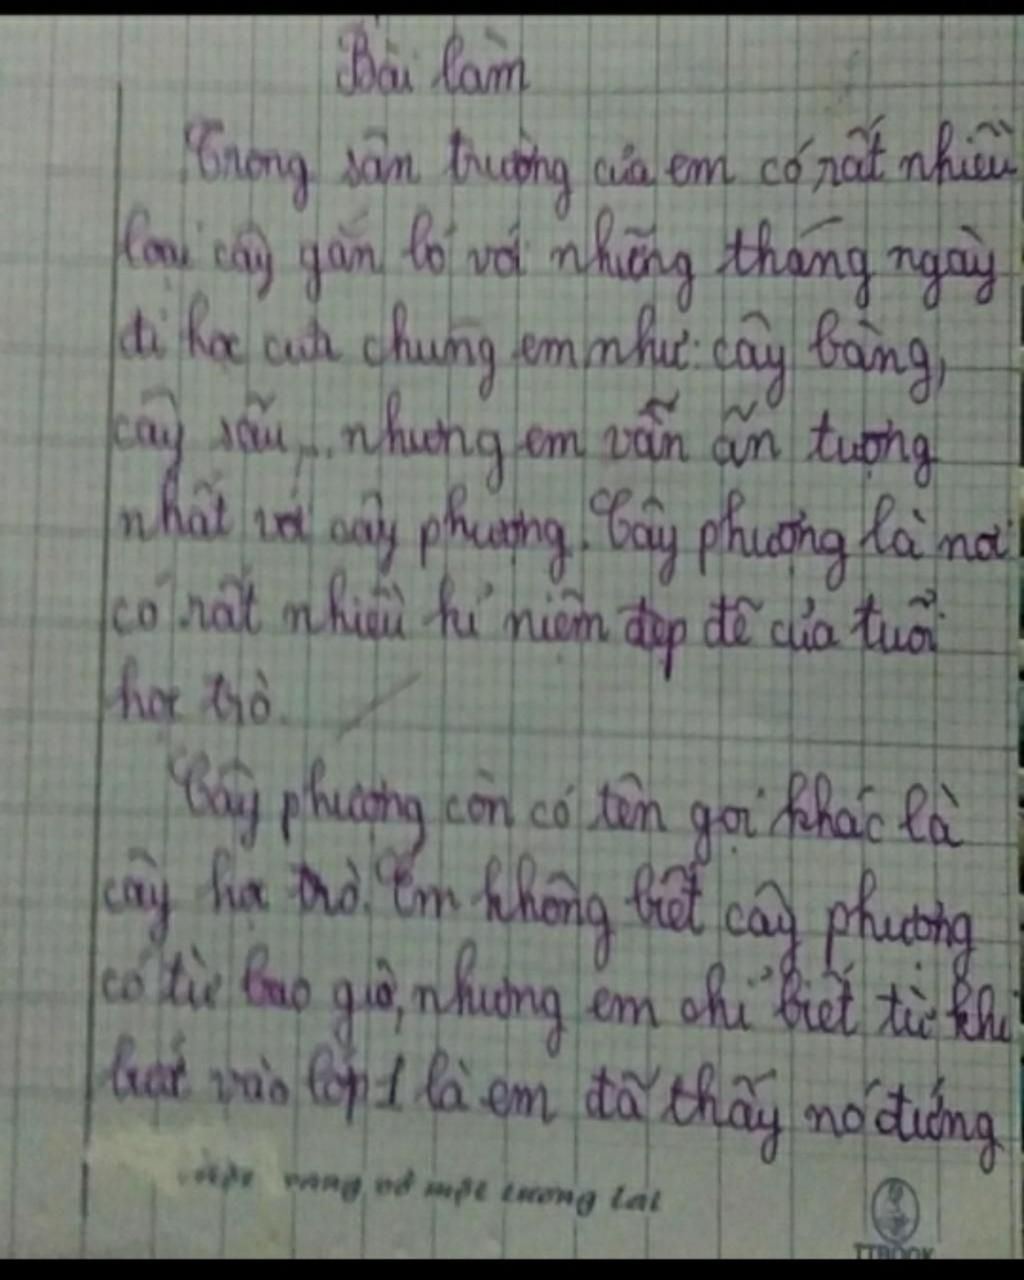 Bài làm
Trong sân trường của em có rất nhiều
loại cây gắn bó với những tháng ngày
đi học của chúng em như: cây bàng,
cây sấu,... nhưng em vẫn ấn tượng
nhất với cây phượng. Cây phượng là nơi
có rất nhiều kỉ niệm đẹp đẽ của tuổi
học trò.
Cây phượng còn có tên gọi khác là
cây học trò. Em không biết cây phượng
có từ bao giờ, nhưng em chỉ biết từ khi
vào lớp 1 là em đã thấy nó đứng
vàng vở một tương lai
TTBOOK